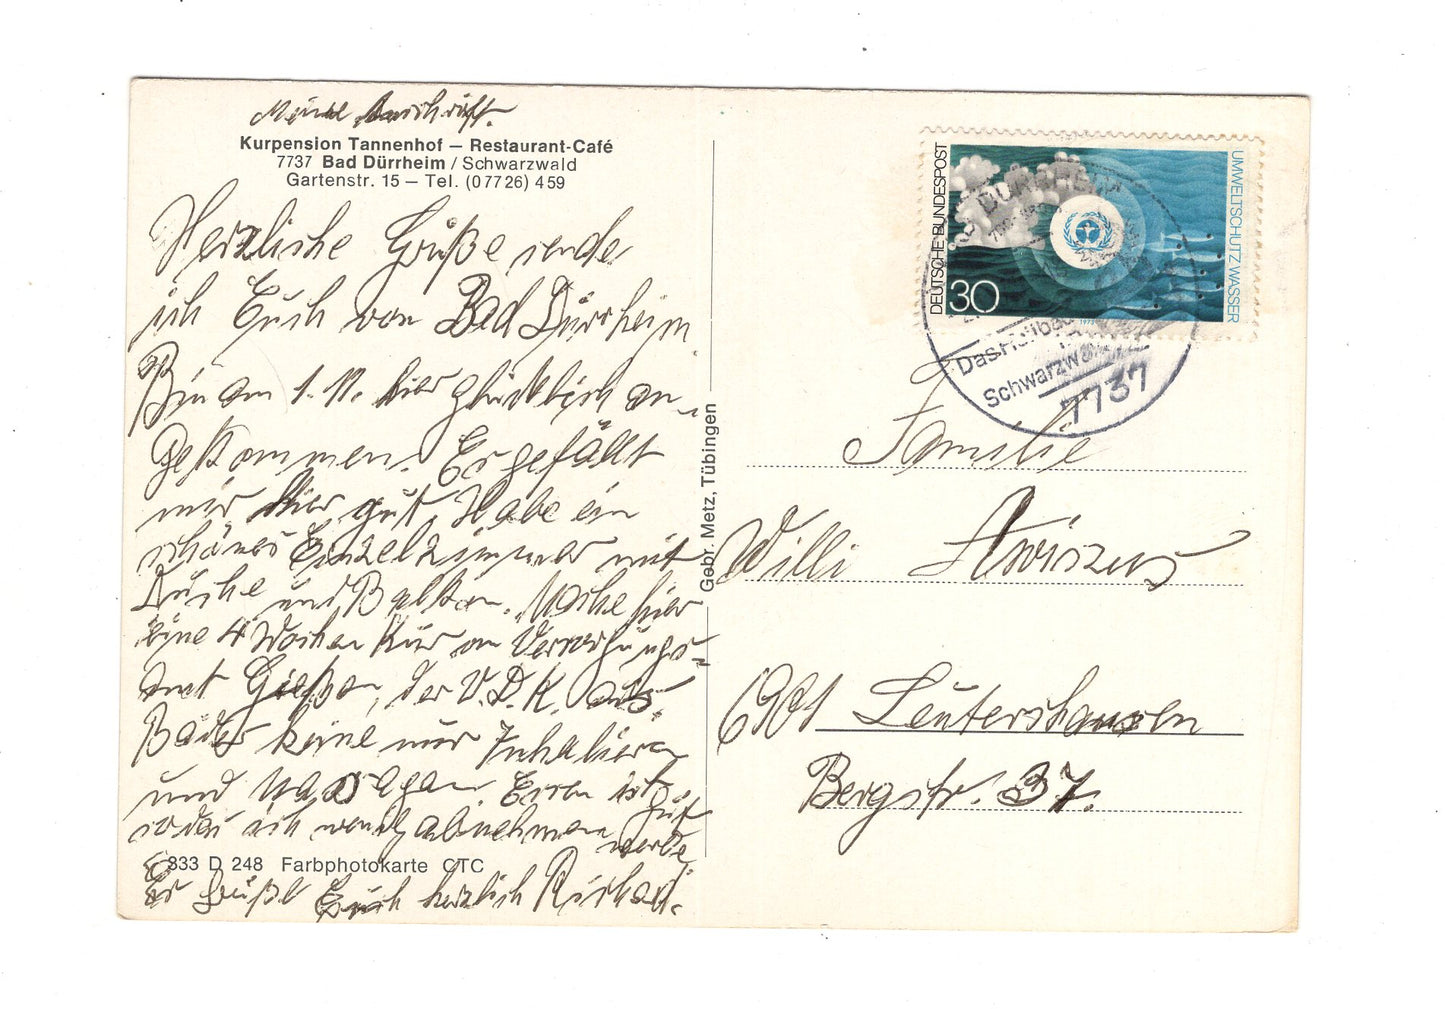 Meine Anschrift.
Kurpension Tannenhof – Restaurant-Café
7737 Bad Dürrheim / Schwarzwald
Gartenstr. 15 – Tel. (07726) 459
Herzliche Grüße sende
ich Euch von Bad Dürrheim.
Bin am 1. 11. hier glücklich an-
gekommen. Es gefällt
mir hier gut. Habe ein
schönes Einzelzimmer mit
Dusche und Balkon. Mache hier
eine 4 Wochen Kur vom Versorgungs=
amt Gießen, der V.D.K. aus.
Bäder keine nur Inhalieren
und Massagen. Essen ist gut
sodas ich wenig abnehmen werde.
Es grüßt Euch herzlich Richard.
833 D 248 Farbphotokarte CTC
Gebr. Metz, Tübingen
DEUTSCHE BUNDESPOST
30
UMWELTSCHUTZ WASSER
1973
DÜRRHEIM
Das Heilbad
Schwarzwa
7737
Familie
Willi Awiszus
6901 Leutershausen
Bergstr. 37.